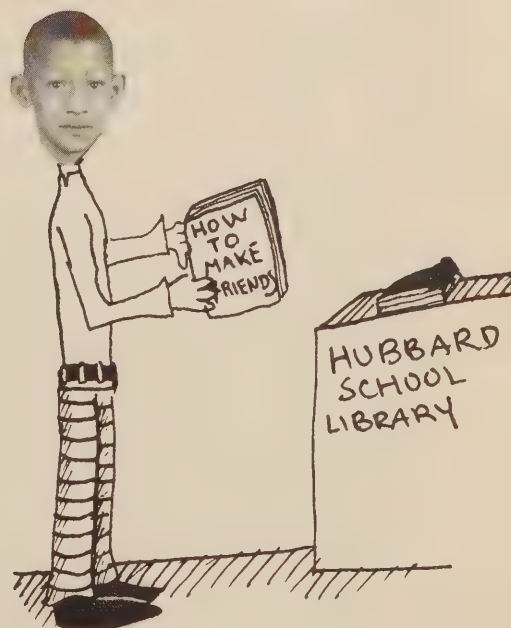 HOW
TO
MAKE
FRIENDS
HUBBARD
SCHOOL
LIBRARY